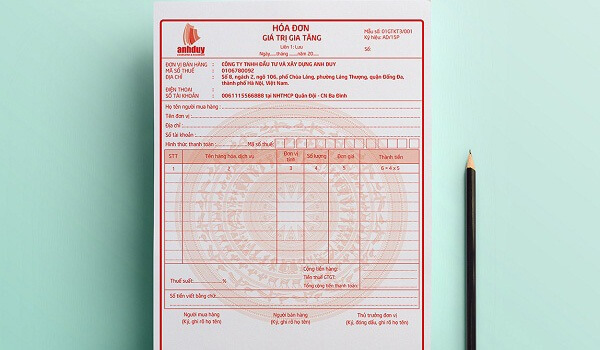 HÓA ĐƠN
GIÁ TRỊ GIA TĂNG
Liên 1: Lưu
Ngày.....tháng ......năm 20.....
Mẫu số: 01GTKT3/001
Ký hiệu: AD/15P
Số:
anhduy
ĐƠN VỊ BÁN HÀNG : CÔNG TY TNHH ĐẦU TƯ VÀ XÂY DỰNG ANH DUY
MÃ SỐ THUẾ : 0106780092
ĐỊA CHỈ : Số 8, ngách 2, ngõ 106, phố Chùa Láng, phường Láng Thượng, quận Đống Đa,
thành phố Hà Nội, Việt Nam.
ĐIỆN THOẠI :
SỐ TÀI KHOẢN : 0061115566888 tại NHTMCP Quân Đội - CN Ba Đình
Họ tên người mua hàng :
Tên đơn vị :
Địa chỉ :
Số tài khoản :
Hình thức thanh toán : Mã số thuế:
STT Tên hàng hóa, dịch vụ Đơn vị tính Số lượng Đơn giá Thành tiền
1 2 3 4 5 6 = 4 x 5
Cộng tiền hàng:
Thuế suất:..........% Tiền thuế GTGT:
Tổng cộng tiền thanh toán:
Số tiền viết bằng chữ:
Người mua hàng Người bán hàng Thủ trưởng đơn vị
(Ký, ghi rõ họ tên) (Ký, ghi rõ họ tên) (Ký, đóng dấu, ghi rõ họ tên)